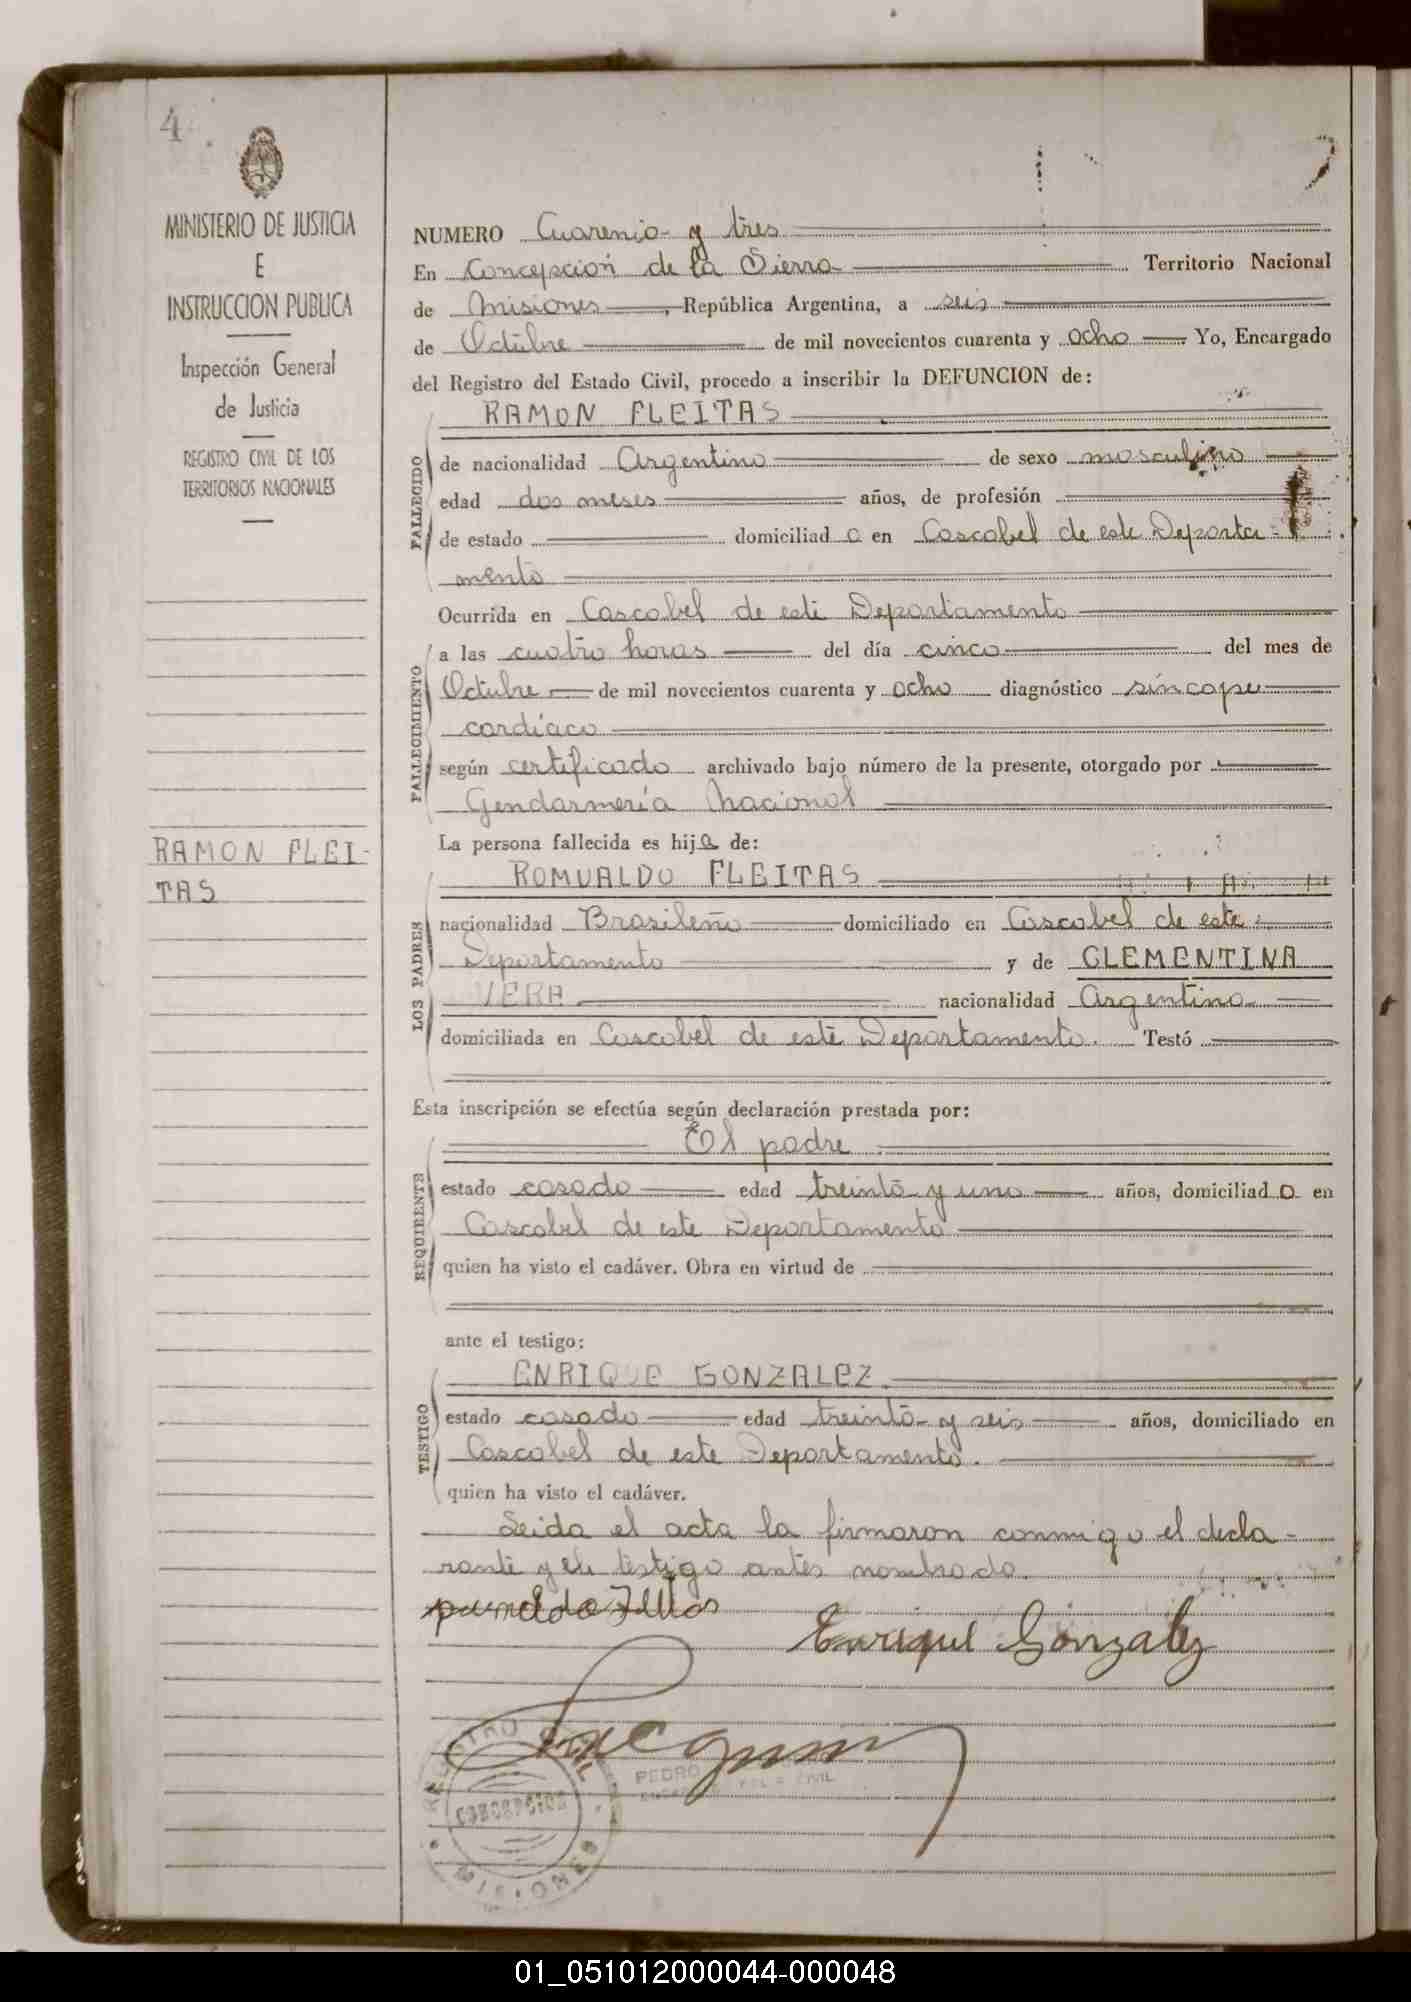 4
MINISTERIO DE JUSTICIA
E
INSTRUCCION PUBLICA
Inspección General
de Justicia
REGISTRO CIVIL DE LOS
TERRITORIOS NACIONALES
RAMON FLEI-
TAS
NUMERO Cuarenta y tres
En Concepción de la Sierra Territorio Nacional
de Misiones, República Argentina, a seis
de Octubre de mil novecientos cuarenta y ocho Yo, Encargado
del Registro del Estado Civil, procedo a inscribir la DEFUNCION de:
RAMON FLEITAS
FALLECIDO
de nacionalidad Argentino de sexo masculino
edad dos meses años, de profesión
de estado domiciliad o en Cascabel de este Departa-
mento
Ocurrida en Cascabel de este Departamento
FALLECIMIENTO
a las cuatro horas del día cinco del mes de
Octubre de mil novecientos cuarenta y ocho diagnóstico síncope
cardíaco
según certificado archivado bajo número de la presente, otorgado por
Gendarmería Nacional
La persona fallecida es hijo de:
ROMUALDO FLEITAS
LOS PADRES
nacionalidad Brasileño domiciliado en Cascabel de este
Departamento y de CLEMENTINA
VERA nacionalidad Argentina
domiciliada en Cascabel de este Departamento. Testó
Esta inscripción se efectúa según declaración prestada por:
El padre
REQUIRENTE
estado casado edad treinta y uno años, domiciliad o en
Cascabel de este Departamento
quien ha visto el cadáver. Obra en virtud de
ante el testigo:
ENRIQUE GONZALEZ
TESTIGO
estado casado edad treinta y seis años, domiciliado en
Cascabel de este Departamento.
quien ha visto el cadáver.
Leida el acta la firmaron conmigo el decla-
rante y el testigo antes nombrado.
Enrique Gonzalez
REGISTRO CIVIL
CONCEPCION
MISIONES
PEDRO
CIVIL
01_051012000044-000048